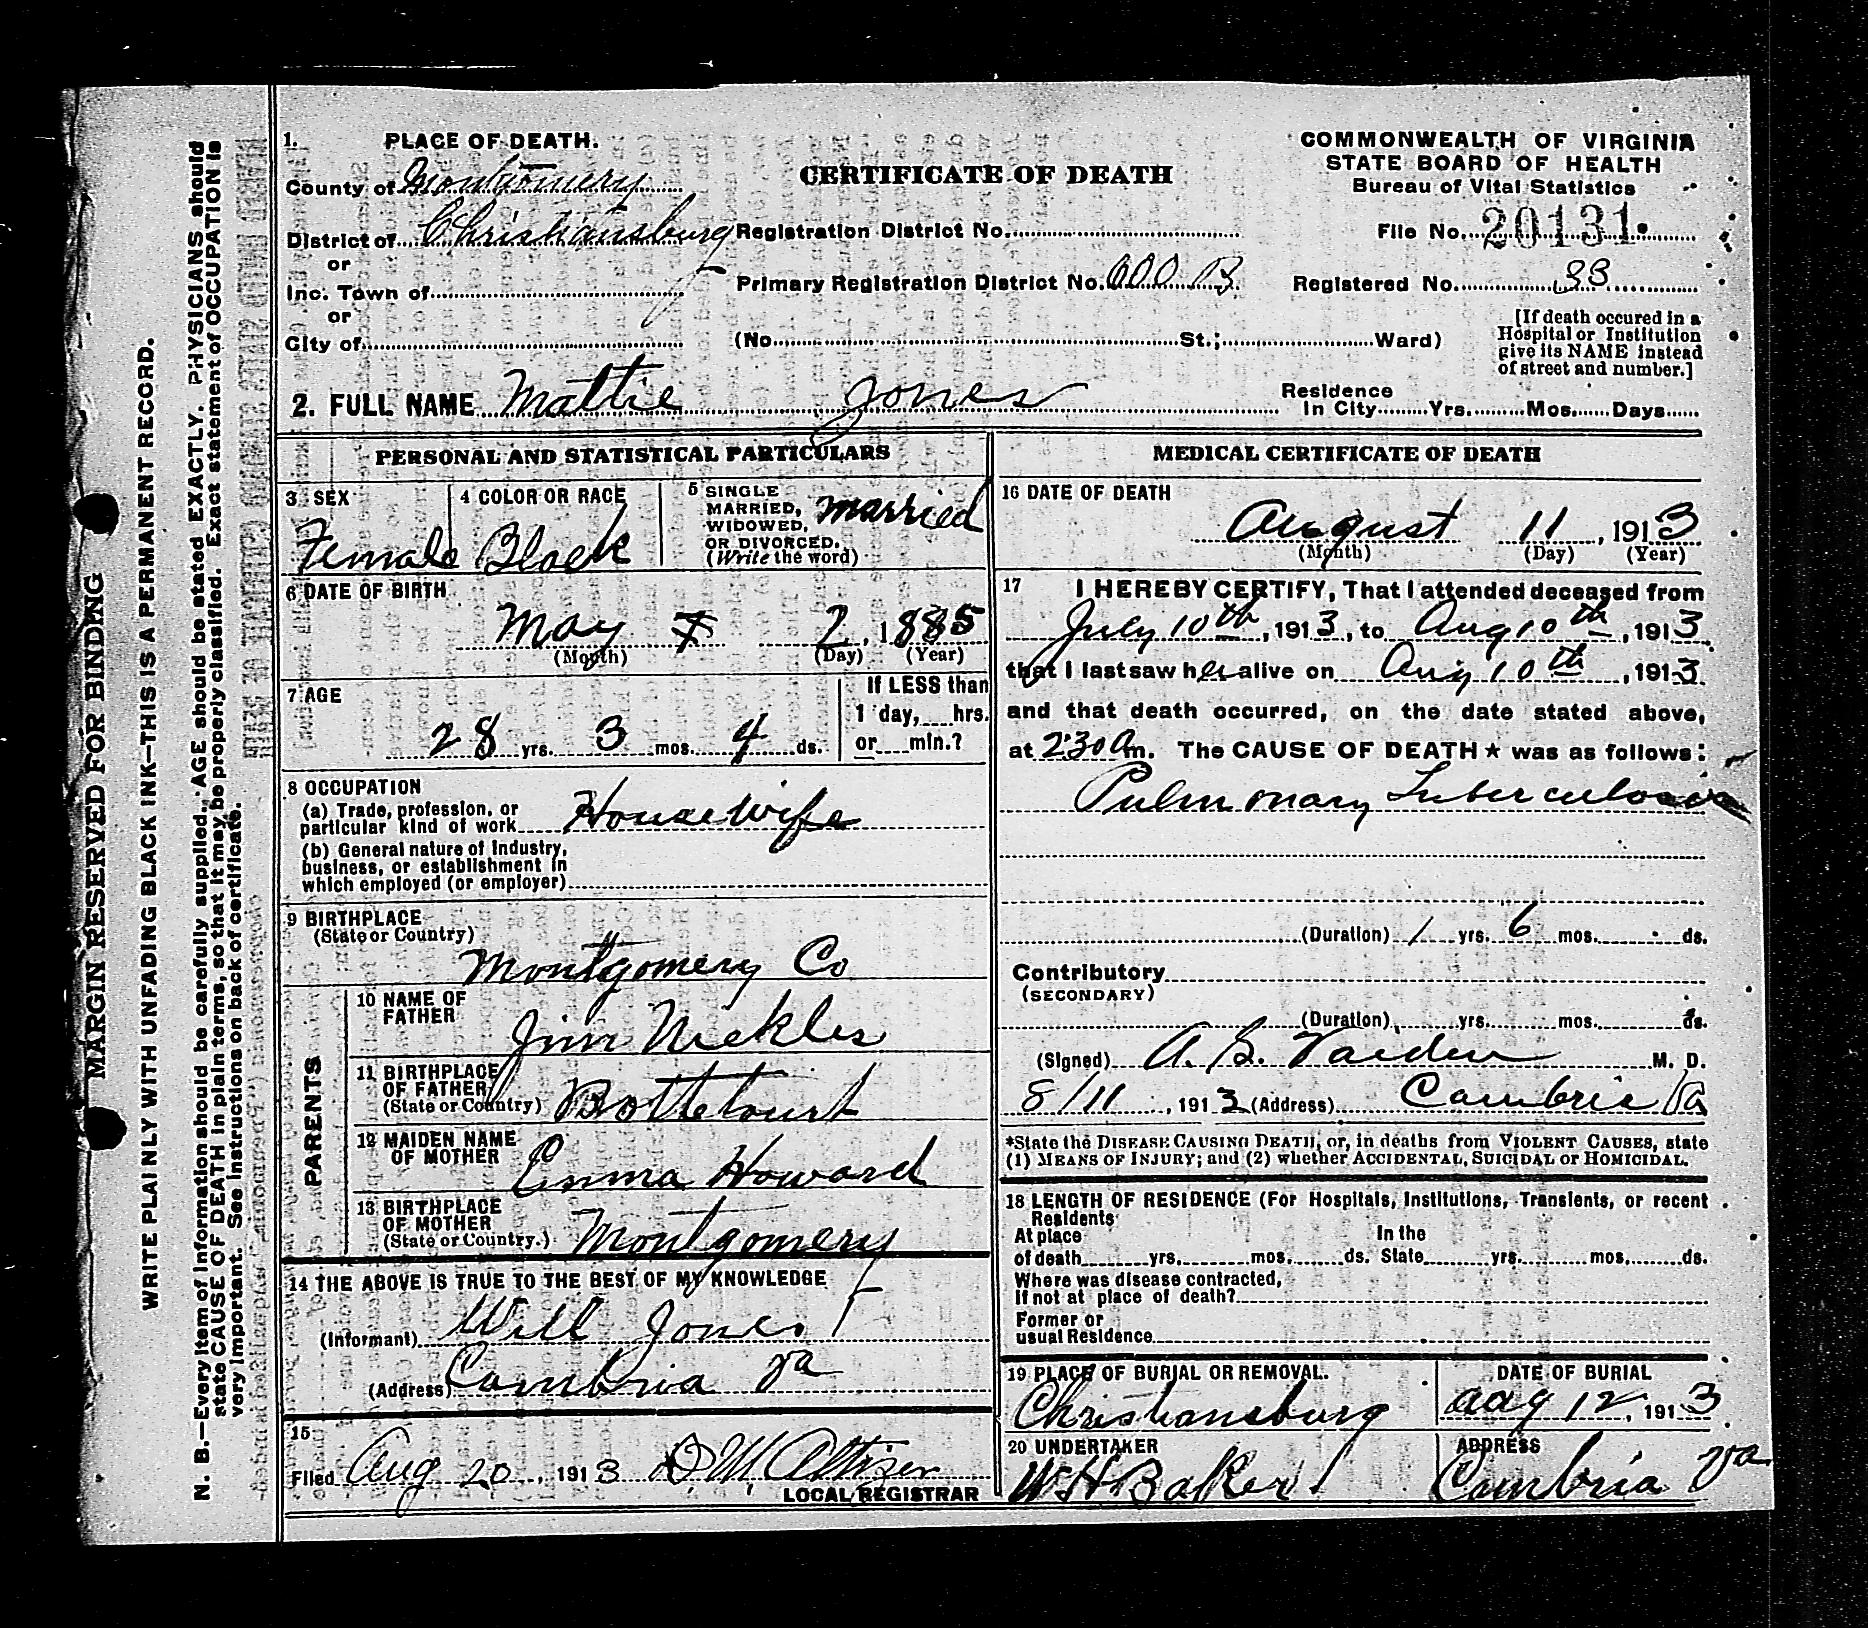 MARGIN RESERVED FOR BINDING
WRITE PLAINLY WITH UNFADING BLACK INK—THIS IS A PERMANENT RECORD.
N. B.—Every item of information should be carefully supplied. AGE should be stated EXACTLY. PHYSICIANS should
state CAUSE OF DEATH in plain terms, so that it may be properly classified. Exact statement of OCCUPATION is
very important. See instructions on back of certificate.
1. PLACE OF DEATH.
County of Montgomery
District of Christiansburg
or
Inc. Town of
or
City of
CERTIFICATE OF DEATH
Registration District No.
Primary Registration District No. 600 B
(No. St.; Ward)
COMMONWEALTH OF VIRGINIA
STATE BOARD OF HEALTH
Bureau of Vital Statistics
File No. 20131
Registered No. 33
[If death occured in a
Hospital or Institution
give its NAME instead
of street and number.]
2. FULL NAME Mattie Jones
Residence
In City Yrs. Mos. Days
PERSONAL AND STATISTICAL PARTICULARS
3 SEX
Female
4 COLOR OR RACE
Black
5 SINGLE
MARRIED,
WIDOWED,
OR DIVORCED.
(Write the word)
married
6 DATE OF BIRTH
May 7 2, 1885
(Month) (Day) (Year)
7 AGE
28 yrs. 3 mos. 4 ds.
If LESS than
1 day, hrs.
or min.?
8 OCCUPATION
(a) Trade, profession, or
particular kind of work Housewife
(b) General nature of Industry,
business, or establishment in
which employed (or employer)
9 BIRTHPLACE
(State or Country)
Montgomery Co
PARENTS
10 NAME OF
FATHER
Jim Nickles
11 BIRTHPLACE
OF FATHER
(State or Country) Bottetourt
12 MAIDEN NAME
OF MOTHER
Emma Howard
13 BIRTHPLACE
OF MOTHER
(State or Country.) Montgomery
14 THE ABOVE IS TRUE TO THE BEST OF MY KNOWLEDGE
(Informant) Will Jones
(Address) Cambria Va
15
Filed Aug 20, 1913 D. W. Altizer
LOCAL REGISTRAR
MEDICAL CERTIFICATE OF DEATH
16 DATE OF DEATH
August 11, 1913
(Month) (Day) (Year)
17 I HEREBY CERTIFY, That I attended deceased from
July 10th, 1913, to Aug 10th, 1913
that I last saw her alive on Aug 10th, 1913
and that death occurred, on the date stated above,
at 2:30 A m. The CAUSE OF DEATH * was as follows:
Pulmonary Tuberculosis
(Duration) 1 yrs. 6 mos. ds.
Contributory
(SECONDARY)
(Duration) yrs. mos. ds.
(Signed) A. B. Vaiden M. D.
8/11, 1913 (Address) Cambria Va
*State the DISEASE CAUSING DEATH, or, in deaths from VIOLENT CAUSES, state
(1) MEANS OF INJURY; and (2) whether ACCIDENTAL, SUICIDAL or HOMICIDAL.
18 LENGTH OF RESIDENCE (For Hospitals, Institutions, Transients, or recent
Residents
At place In the
of death yrs. mos. ds. State yrs. mos. ds.
Where was disease contracted,
If not at place of death?
Former or
usual Residence
19 PLACE OF BURIAL OR REMOVAL.
Christiansburg
DATE OF BURIAL
Aug 12, 1913
20 UNDERTAKER
W H Baker
ADDRESS
Cambria Va